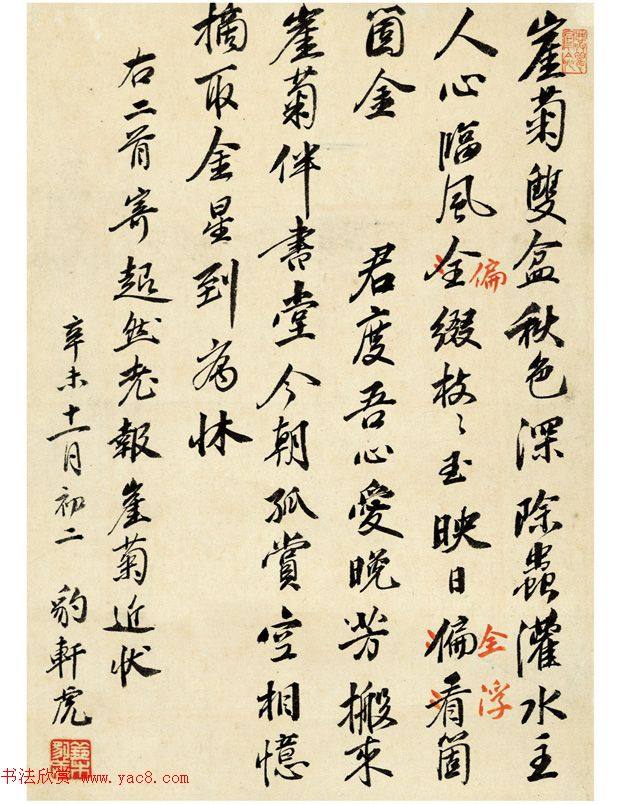 崖菊雙盆秋色深除蟲灌水主
人心臨風全綴枝〻玉映日偏看箇
偏
全浮
箇金 君度吾心愛晚芳搬來
崖菊伴書堂今朝孤賞空相憶
摘取金星到病牀
右二首寄超然老報崖菊近狀
辛未十一月初二 豹軒虎
书法欣赏 www.yac8.com